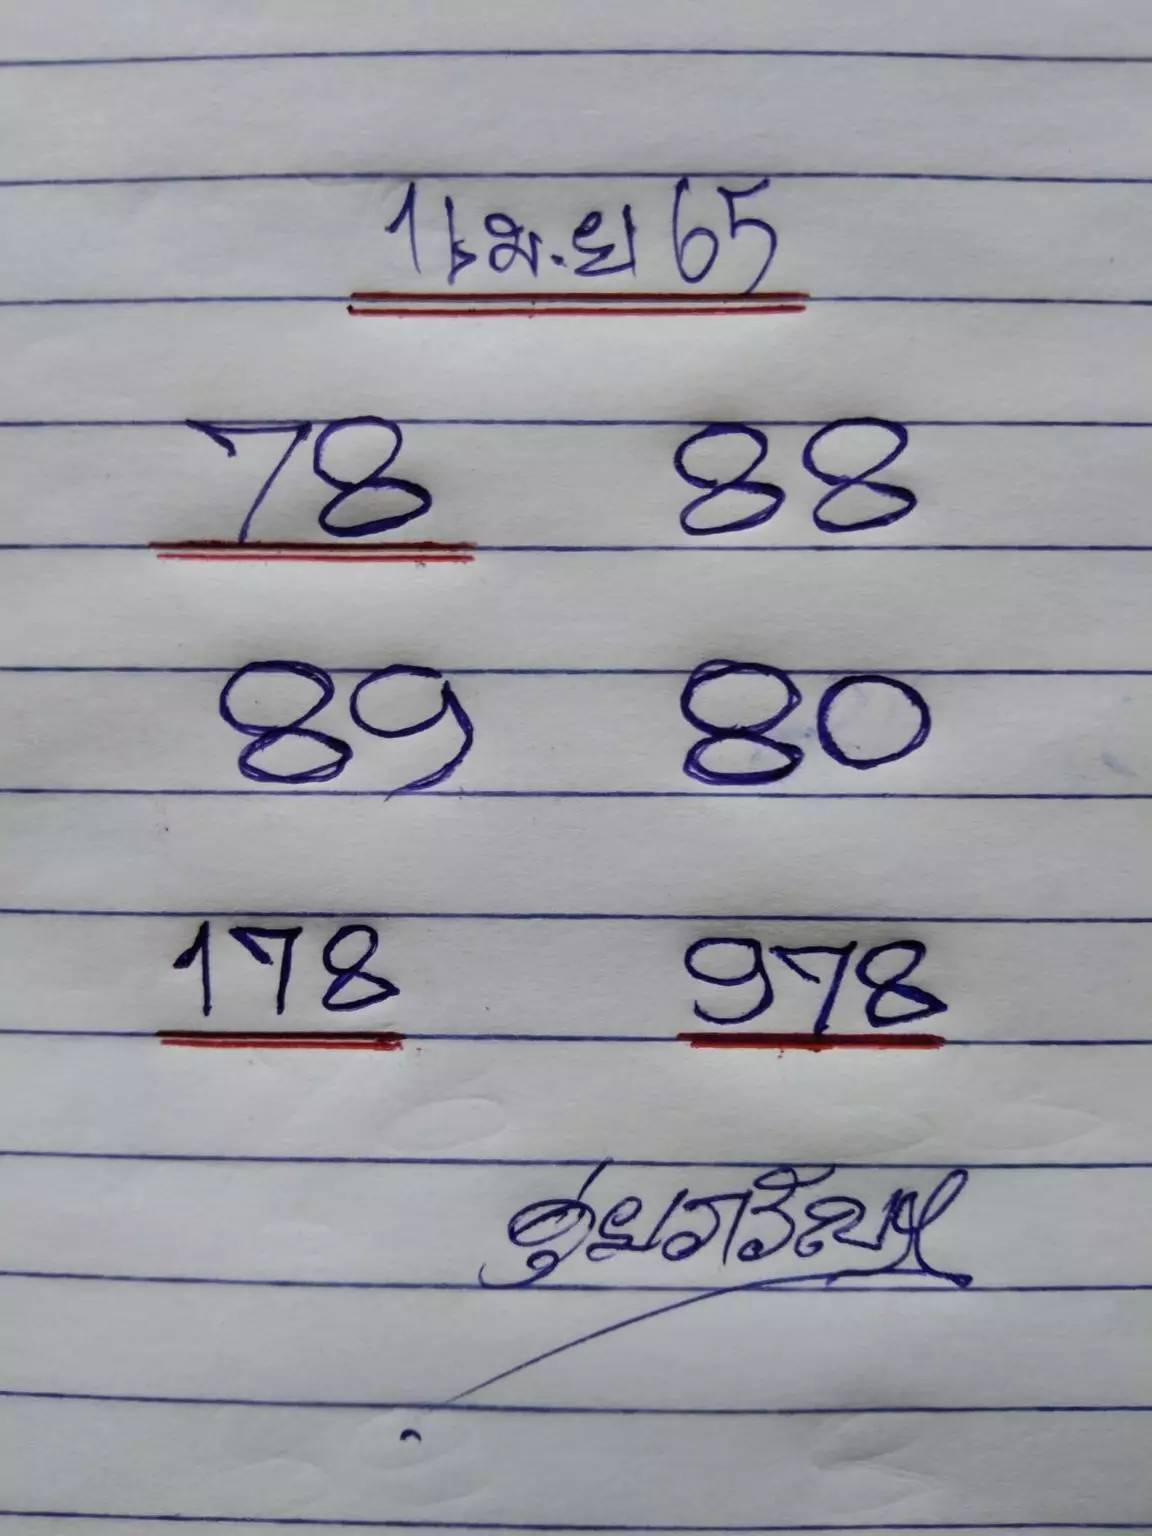 1 เม.ย 65
78 88
89 80
178 978